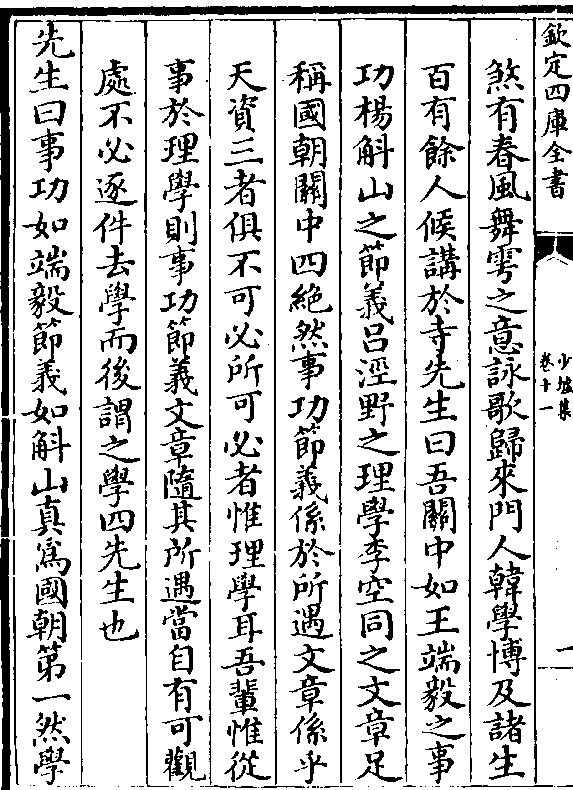 欽定四庫全書
少墟集
卷十一
一
煞有春風舞雩之意詠歌歸來門人韓學博及諸生
百有餘人候講於寺先生曰吾關中如王端毅之事
功楊斛山之節義呂涇野之理學李空同之文章足
稱國朝關中四絶然事功節義係於所遇文章係乎
天資三者俱不可必所可必者惟理學耳吾輩惟從
事於理學則事功節義文章隨其所遇當自有可觀
處不必逐件去學而後謂之學四先生也
先生曰事功如端毅節義如斛山真為國朝第一然學